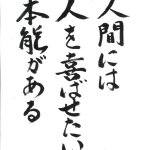 人間には
人を喜ばせたい
本能がある